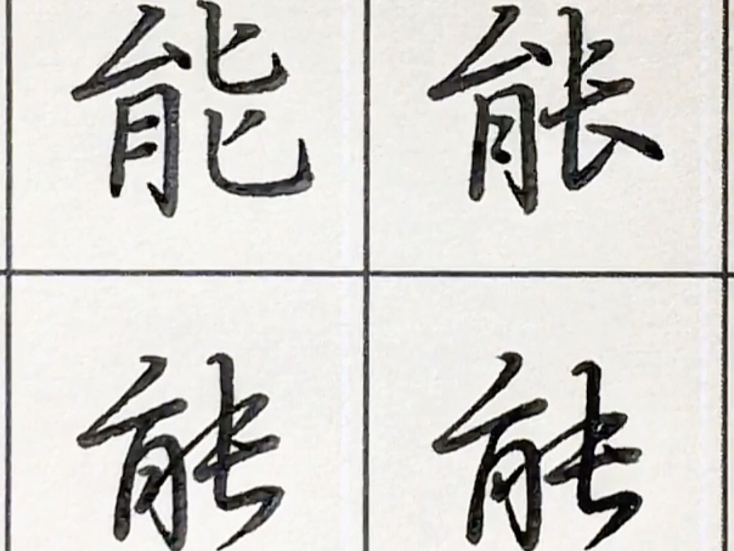 能 能
能 能